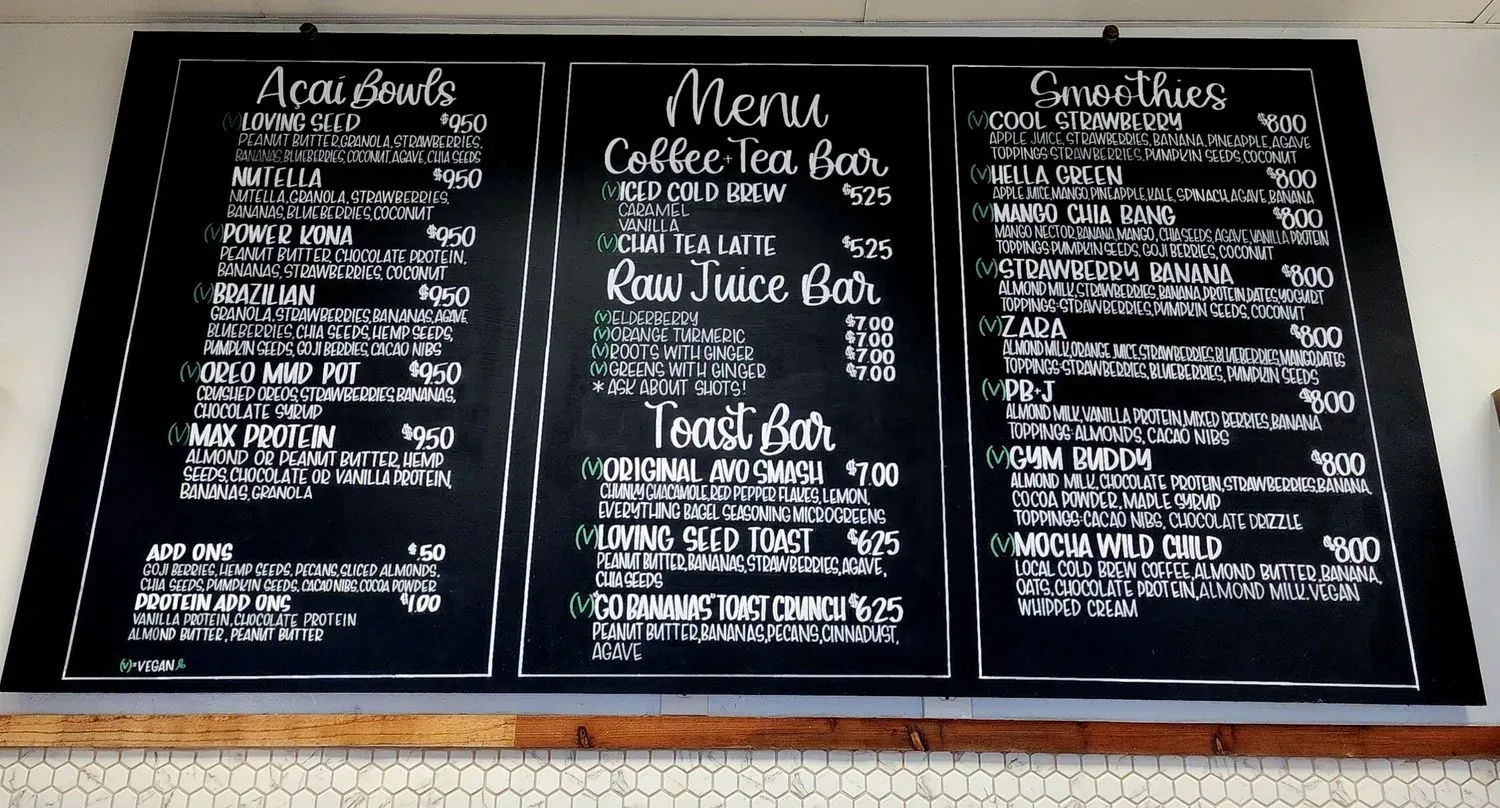 Açaí Bowls
(V) LOVING SEED $9.50
PEANUT BUTTER, GRANOLA, STRAWBERRIES,
BANANAS, BLUEBERRIES, COCONUT, AGAVE, CHIA SEEDS
NUTELLA $9.50
NUTELLA, GRANOLA, STRAWBERRIES,
BANANAS, BLUEBERRIES, COCONUT
(V) POWER KONA $9.50
PEANUT BUTTER, CHOCOLATE PROTEIN,
BANANAS, STRAWBERRIES, COCONUT
(V) BRAZILIAN $9.50
GRANOLA, STRAWBERRIES, BANANAS, AGAVE,
BLUEBERRIES, CHIA SEEDS, HEMP SEEDS,
PUMPKIN SEEDS, GOJI BERRIES, CACAO NIBS
(V) OREO MUD POT $9.50
CRUSHED OREOS, STRAWBERRIES, BANANAS,
CHOCOLATE SYRUP
(V) MAX PROTEIN $9.50
ALMOND OR PEANUT BUTTER, HEMP
SEEDS, CHOCOLATE OR VANILLA PROTEIN,
BANANAS, GRANOLA
ADD ONS $.50
GOJI BERRIES, HEMP SEEDS, PECANS, SLICED ALMONDS,
CHIA SEEDS, PUMPKIN SEEDS, CACAO NIBS, COCOA POWDER
PROTEIN ADD ONS $1.00
VANILLA PROTEIN, CHOCOLATE PROTEIN
ALMOND BUTTER, PEANUT BUTTER
(V)=VEGAN
Menu
Coffee + Tea Bar
(V) ICED COLD BREW $5.25
CARAMEL
VANILLA
(V) CHAI TEA LATTE $5.25
Raw Juice Bar
(V) ELDERBERRY $7.00
(V) ORANGE TURMERIC $7.00
(V) ROOTS WITH GINGER $7.00
(V) GREENS WITH GINGER $7.00
* ASK ABOUT SHOTS!
Toast Bar
(V) ORIGINAL AVO SMASH $7.00
CHUNKY GUACAMOLE, RED PEPPER FLAKES, LEMON,
EVERYTHING BAGEL SEASONING MICROGREENS
(V) LOVING SEED TOAST $6.25
PEANUT BUTTER, BANANAS, STRAWBERRIES, AGAVE,
CHIA SEEDS
(V) "GO BANANAS" TOAST CRUNCH $6.25
PEANUT BUTTER, BANANAS, PECANS, CINNADUST,
AGAVE
Smoothies
(V) COOL STRAWBERRY $8.00
APPLE JUICE, STRAWBERRIES, BANANA, PINEAPPLE, AGAVE
TOPPINGS: STRAWBERRIES, PUMPKIN SEEDS, COCONUT
(V) HELLA GREEN $8.00
APPLE JUICE, MANGO, PINEAPPLE, KALE, SPINACH, AGAVE, BANANA
(V) MANGO CHIA BANG $8.00
MANGO NECTOR, BANANA, MANGO, CHIA SEEDS, AGAVE, VANILLA PROTEIN
TOPPINGS: PUMPKIN SEEDS, GOJI BERRIES, COCONUT
(V) STRAWBERRY BANANA $8.00
ALMOND MILK, STRAWBERRIES, BANANA, PROTEIN, DATES, YOGURT
TOPPINGS: STRAWBERRIES, PUMPKIN SEEDS, COCONUT
(V) ZARA $8.00
ALMOND MILK, ORANGE JUICE, STRAWBERRIES, BLUEBERRIES, MANGO, DATES
TOPPINGS: STRAWBERRIES, BLUEBERRIES, PUMPKIN SEEDS
(V) PB+J $8.00
ALMOND MILK, VANILLA PROTEIN, MIXED BERRIES, BANANA
TOPPINGS: ALMONDS, CACAO NIBS
(V) GYM BUDDY $8.00
ALMOND MILK, CHOCOLATE PROTEIN, STRAWBERRIES, BANANA,
COCOA POWDER, MAPLE SYRUP
TOPPINGS: CACAO NIBS, CHOCOLATE DRIZZLE
(V) MOCHA WILD CHILD $8.00
LOCAL COLD BREW COFFEE, ALMOND BUTTER, BANANA,
OATS, CHOCOLATE PROTEIN, ALMOND MILK, VEGAN
WHIPPED CREAM